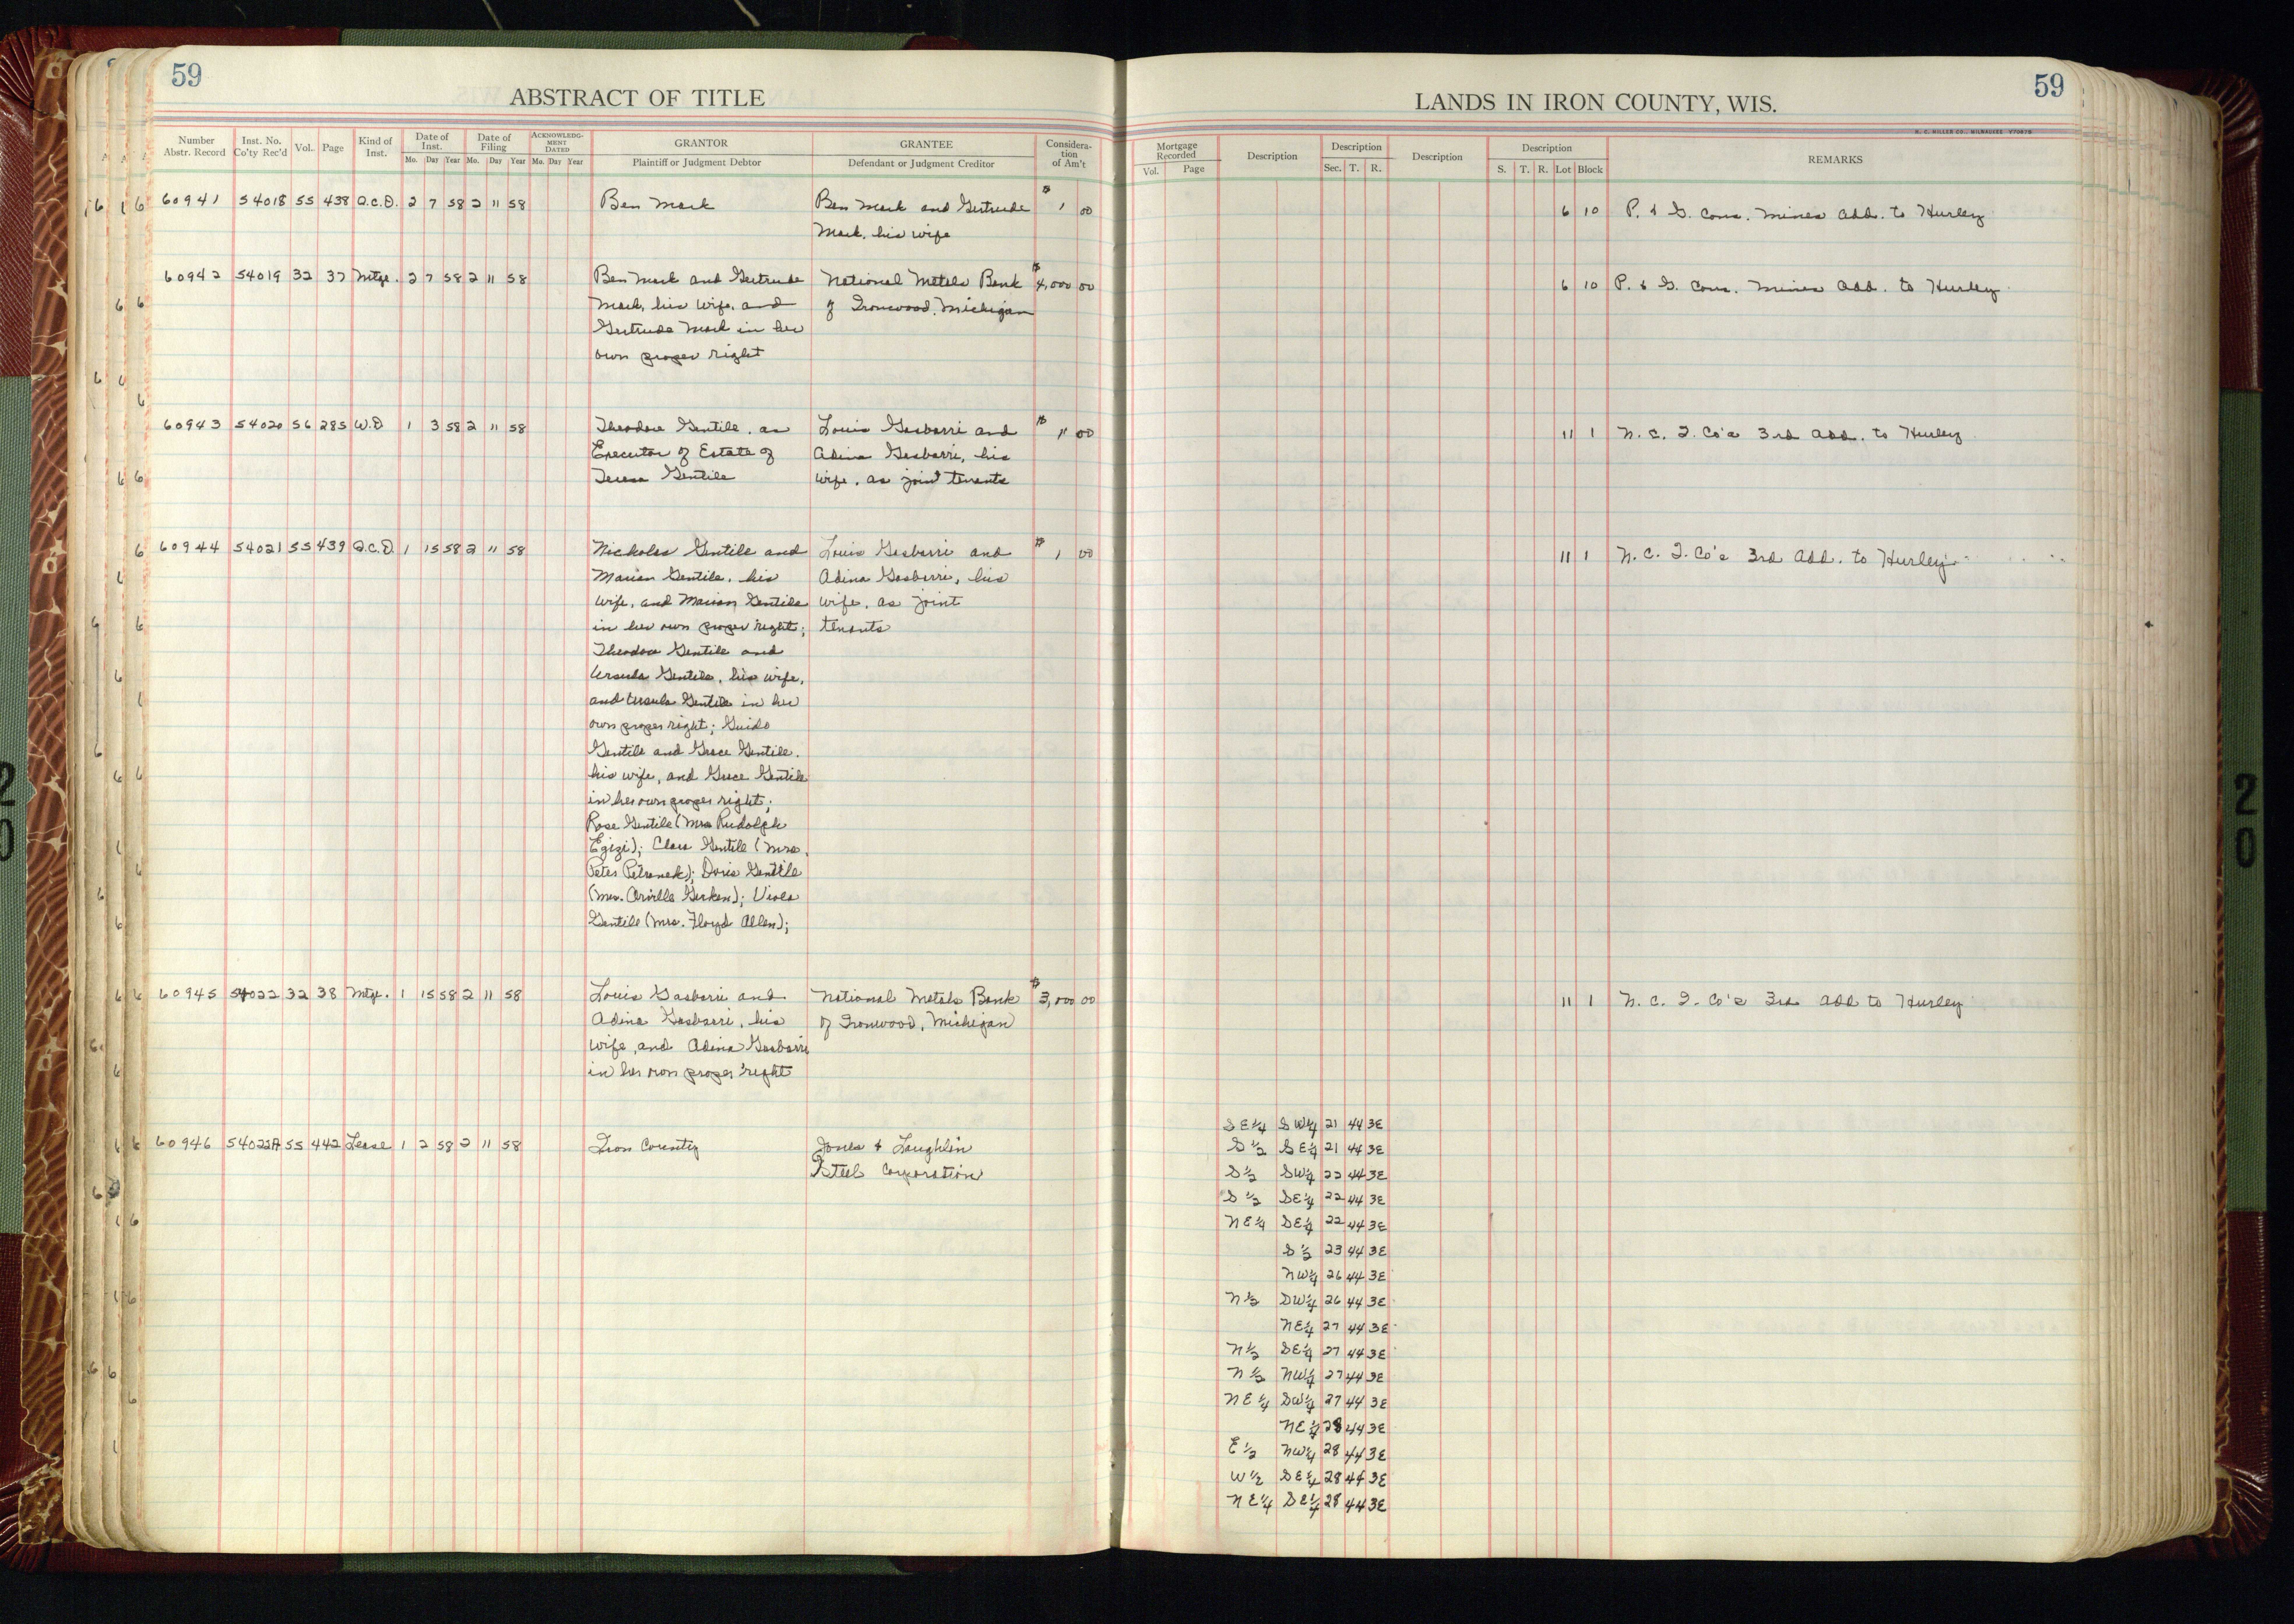 59
ABSTRACT OF TITLE
Number Abstr. Record | Inst. No. Co'ty Rec'd | Vol. | Page | Kind of Inst. | Date of Inst. | Date of Filing | ACKNOWLEDGMENT DATED | GRANTOR | GRANTEE | Consideration of Am't
Mo. Day Year | Mo. Day Year | Mo. Day Year | Plaintiff or Judgment Debtor | Defendant or Judgment Creditor
60941 54018 55 438 Q.C.D. 2 7 58 2 11 58 Ben Mark Ben Mark and Gertrude $ 1 00
Mark, his wife
60942 54019 32 37 Mtge. 2 7 58 2 11 58 Ben Mark and Gertrude National Metals Bank $ 4,000 00
Mark, his wife, and of Ironwood, Michigan
Gertrude Mark in her
own proper right
60943 54020 56 285 W.D 1 3 58 2 11 58 Theodore Gentile, as Louis Gasbarri and $ 11 00
Executor of Estate of Adina Gasbarri, his
Teresa Gentile wife, as joint tenants
60944 54021 55 439 Q.C.D. 1 15 58 2 11 58 Nicholas Gentile and Louis Gasbarri and $ 1 00
Marian Gentile, his Adina Gasbarri, his
wife, and Marian Gentile wife, as joint
in her own proper right; tenants
Theodore Gentile and
Ursula Gentile, his wife,
and Ursula Gentile in her
own proper right; Guido
Gentile and Grace Gentile,
his wife, and Grace Gentile
in her own proper right;
Rose Gentile (Mrs Rudolph
Egizi); Clara Gentile (Mrs.
Peter Petranek); Doris Gentile
(Mrs. Orville Gerken); Viola
Gentile (Mrs. Floyd Allen);
60945 54022 32 38 Mtge. 1 15 58 2 11 58 Louis Gasbarri and National Metals Bank $ 3,000 00
Adina Gasbarri, his of Ironwood, Michigan
wife, and Adina Gasbarri
in her own proper right
60946 54022A 55 442 Lease 1 2 58 2 11 58 Iron County Jones & Laughlin
Steel Corporation
59
LANDS IN IRON COUNTY, WIS.
H. C. MILLER CO., MILWAUKEE V70678
Mortgage Recorded | Description | Description | Description | Description | REMARKS
Vol. Page | Sec. T. R. | S. T. R. Lot Block
6 10 P. & G. Cons. Mines Add. to Hurley
6 10 P. & G. Cons. Mines Add. to Hurley
11 1 N. C. I. Co's 3rd Add. to Hurley
11 1 N. C. I. Co's 3rd Add. to Hurley
11 1 N. C. I. Co's 3rd Add to Hurley
SE¼ SW¼ 21 44 3E
S½ SE¼ 21 44 3E
S½ SW¼ 22 44 3E
S½ SE¼ 22 44 3E
NE¼ SE¼ 22 44 3E
S½ 23 44 3E
NW¼ 26 44 3E
N½ SW¼ 26 44 3E
NE¼ 27 44 3E
N½ SE¼ 27 44 3E
N½ NW¼ 27 44 3E
NE¼ SW¼ 27 44 3E
NE¼ 28 44 3E
E½ NW¼ 28 44 3E
W½ SE¼ 28 44 3E
NE¼ SE¼ 28 44 3E
20